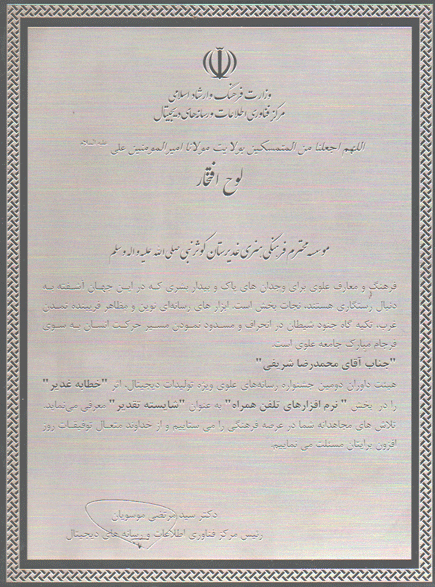 وزارت فرهنگ و ارشاد اسلامی
مرکز فناوری اطلاعات و رسانه‌های دیجیتال
اللهم اجعلنا من المتمسکین بولایت مولانا امیرالمومنین علی علیه السلام
لوح افتخار
موسسه محترم فرهنگی هنری غدیرستان کوثر نبی صلی الله علیه و اله وسلم
فرهنگ و معارف علوی برای وجدان های پاک و بیدار بشری که در این جهان آشفته به
دنبال رستگاری هستند، نجات بخش است. ابزار های رسانه‌ای نوین و مظاهر فریبنده تمدن
غرب، تکیه گاه جنود شیطان در انحراف و مسدود نمودن مسیر حرکت انسان به سوی
فرجام مبارک جامعه علوی است.
"جناب آقای محمدرضا شریفی"
هیئت داوران دومین جشنواره رسانه‌های علوی ویژه تولیدات دیجیتال، اثر "خطابه غدیر"
را در بخش "نرم افزارهای تلفن همراه" به عنوان "شایسته تقدیر" معرفی می‌نماید.
تلاش های مجاهدانه شما در عرصه فرهنگی را می ستاییم و از خداوند متعال توفیقات روز
افزون برایتان مسئلت می نماییم.
دکتر سید مرتضی موسویان
رئیس مرکز فناوری اطلاعات و رسانه های دیجیتال